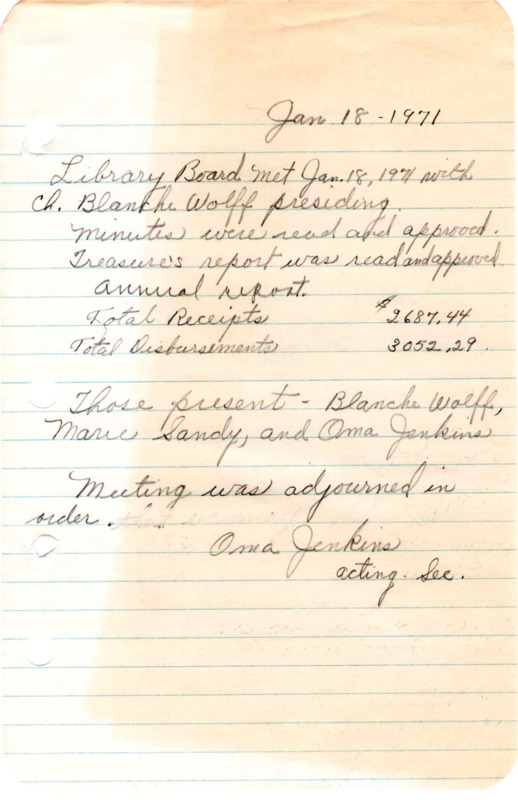 Jan 18 - 1971
Library Board met Jan. 18, 1971 with
Ch. Blanche Wolff presiding.
Minutes were read and approved.
Treasure's report was read and approved
Annual report.
Total Receipts $2687.44
Total Disbursements 3052.29.
Those present - Blanche Wolff,
Marie Sandy, and Oma Jenkins
Meeting was adjourned in
order.
Oma Jenkins
acting. Sec.